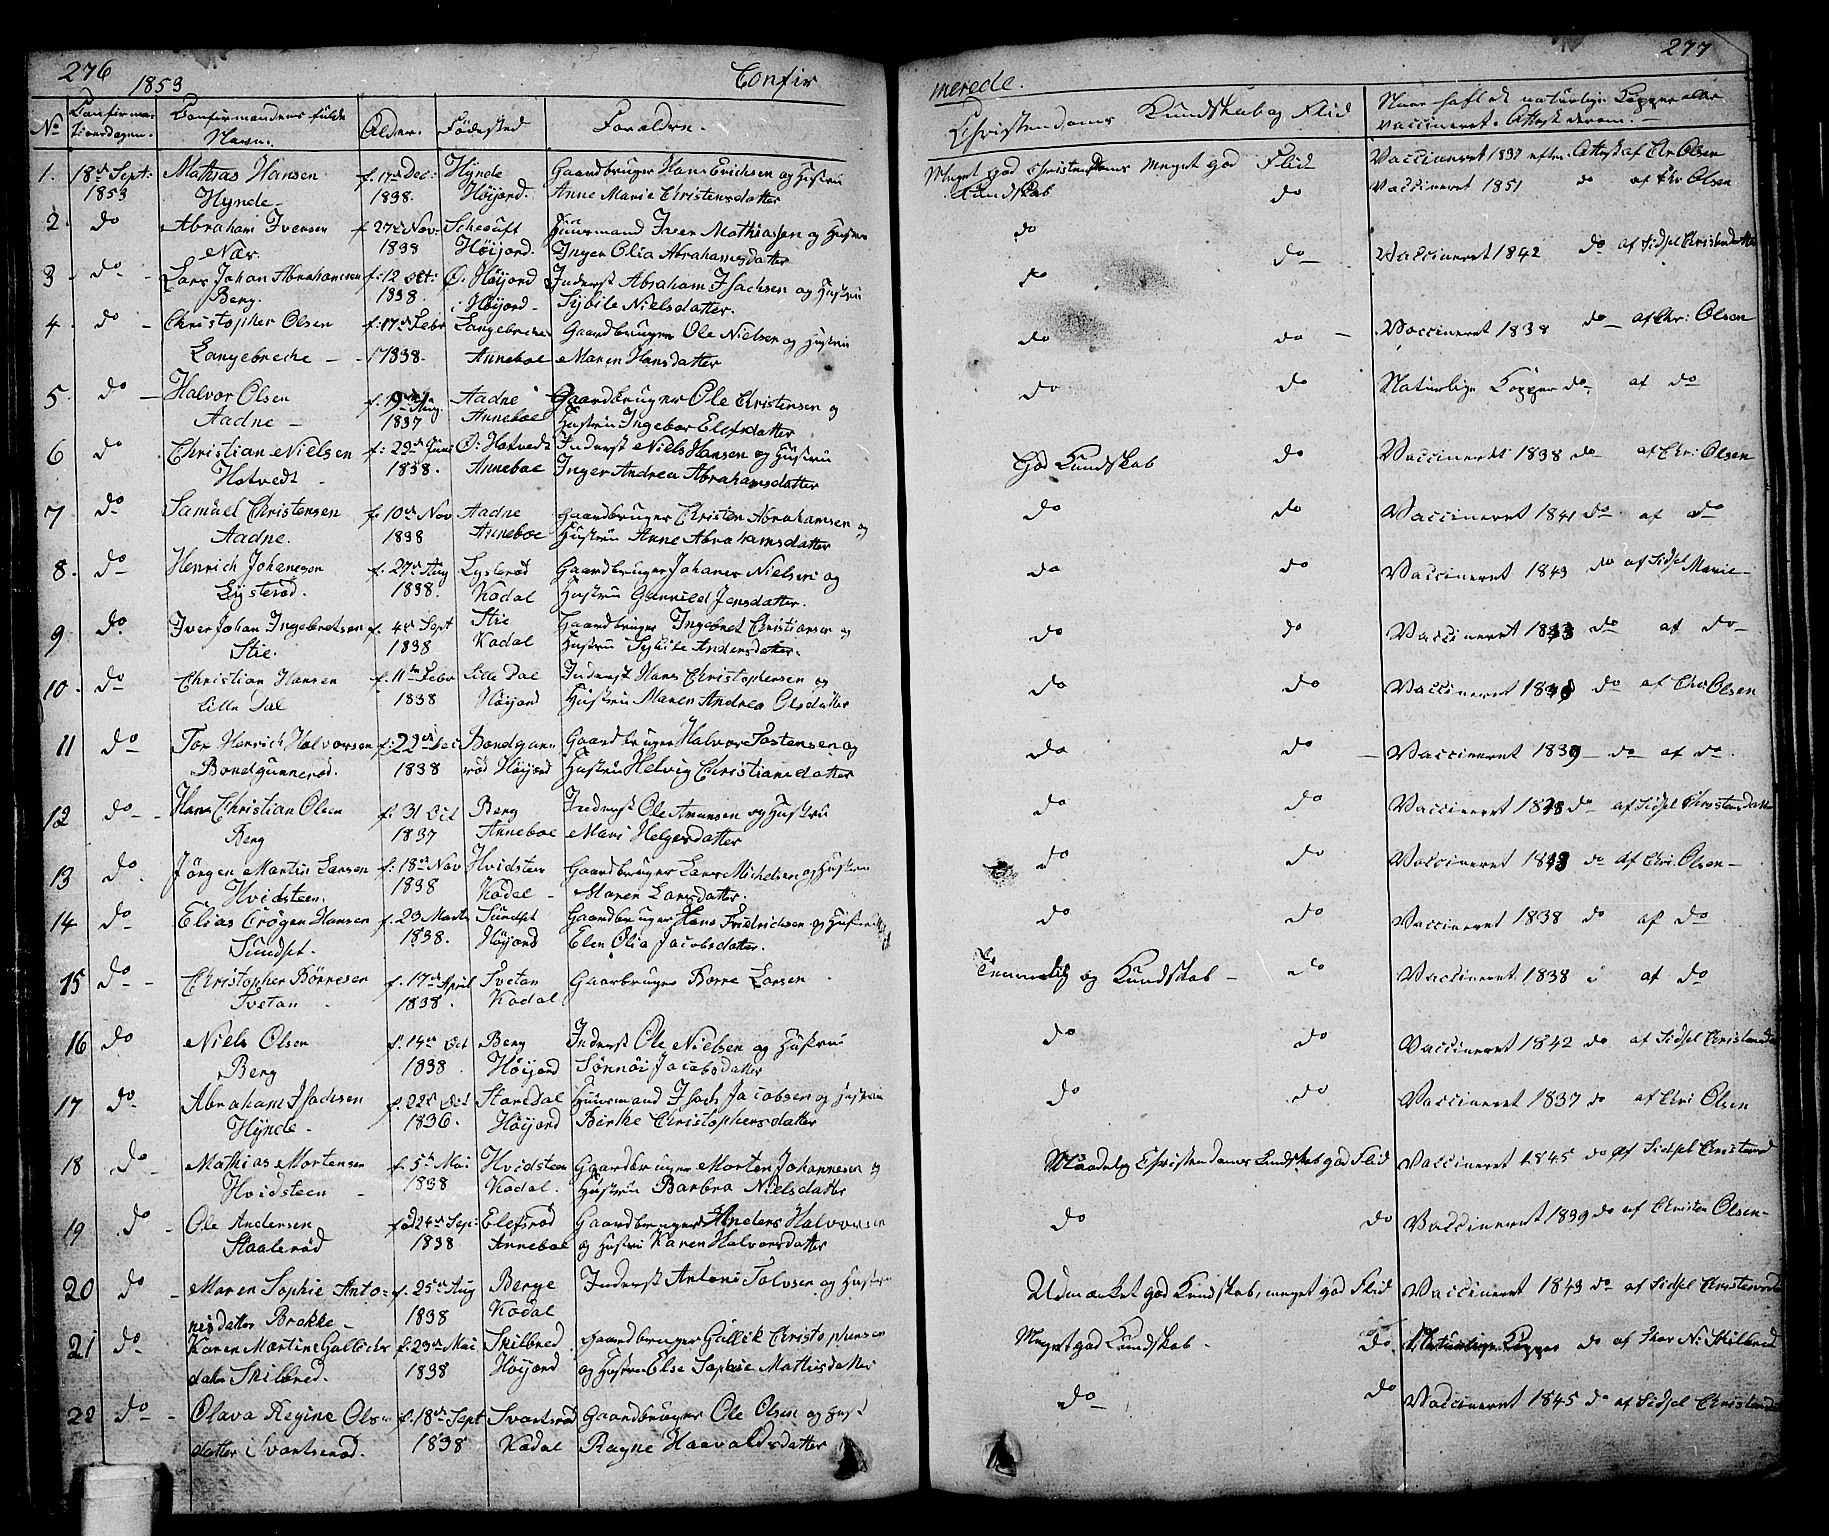 276 1853 Confir
No Confirma- tionsdagen. Confirmandens fulde Navn. Alder. Födested Forældre.
1. 18de Sept: Mathias Hansen f. 17de Dec: Hynde Gaardbruger Hans Erichsen og Hustru
1853 Hynde 1838. Höijord. Anne Marie Christensdatter
2. do Abraham Iversen f. 27de Nov: Huusmand Iver Mathiassen og Hustru
Nær 1838 Höijord. Inger Olia Abrahamsdatter
3 do Lars Johan Abrahamsen f: 12 Oct: Ö: Höijord Inderst Abraham Isachsen og Hustru
Berg. 1838. i Höijord Sybile Nielsdatter.
4 do Christopher Olsen f. 17de Febr Langebreche Gaardbruger Ole Nielsen og Hustru
Langebreche 1838. Anneboe Maren Hansdatter
5. do Halvor Olsen f. 19de Aug. Aadne Gaardbruger Ole Christensen og
Aadne 1837 Anneboe Hustru Ingebor Elefsdatter
6 do Christian Nielsen f: 29de Juni Ö: Hotvedt Inderst Niels Hansen og Hustru
Hotvedt 1838. Anneboe Inger Andrea Abrahamsdatter
7 do Samuel Christensen f. 10de Nov Aadne Gaardbruger Christen Abrahamsen og
Aadne. 1838 Anneboe Hustru Anne Abrahamsdatter
8. do Henrich Johanesen f. 27de Aug Lysteröd Gaardbruger Johanes Nielsen og
Lysteröd. 1838. Kodal Hustru Gunnild Jensdatter.
9 do Iver Johan Ingebretsen f. 4de Sept Stie Gaardbruger Ingebret Christiansen og
Stie. 1838 Kodal Hustru Sybile Andersdatter.
10. do Christian Hansen f. 11te Febr Lille Dal Inderst Hans Christophersen og
Lille Dal 1838 Höijord Hustru Maren Andrea Olsdatter
11 do Tor Henrich Halvorsen f: 22de Dec Bondgun- Gaardbruger Halvor Tostensen og
Bondgunneröd. 1838 röd Höijord Hustru Helvig Christiansdatter
12 do Hans Christian Olsen f. 31 Oct Berg Inderst Ole Amunsen og Hustru
Berg 1837 Anneboe Mari Helgesdatter
13 do. Jörgen Martin Larsen f: 18de Nov Hvidsteen Gaardbruger Lars Michelsen og Hustru
Hvidsteen. 1838 Kodal Maren Larsdatter.
14 do Elias Crögen Hansen f. 23 Marts Sundset Gaardbruger Hans Fredrichsen og Hustru
Sundset. 1838. Höijord Elen Olia Jacobsdatter.
15 do Christopher Börresen f. 17de April Tvetan Gaarbruger Borre Larsen
Tvetan 1838. Kodal
16 do Niels Olsen f. 14de Oct Berg Inderst Ole Nielsen og Hustru
Berg 1838 Höijord Sönnöi Jacobsdatter
17 do. Abraham Isachsen f. 22de Oct Storedal Huusmand Isach Jacobsen og Hustru
Hynde 1836. Höijord Birthe Christophersdatter
18 do Mathias Mortensen f. 5te Mai Hvidsteen Gaardbruger Morten Johannesen og
Hvidsteen 1838 Kodal. Hustru Barbra Nielsdatter
19 do Ole Andersen föd 24de Sep: Elefsröd Gaardbruger Anders Halvorsen
Staaleröd 1838 Anneboe og Hustru Karen Halvorsdatter
20 do Maren Sophie Anto- f. 25de Aug Berge Inderst Antoni Tolvsen og Hustru
nisdatter Brekke 1838 Kodal
21 do Karen Martine Gullichs- f. 23de Mai Skilbred Gaardbruger Gullik Christophersen
datr Skilbred. 1838 Höijord og Hustru Else Sophie Mathisdatter
22 do Olava Regine Ols- f. 18de Sept Svartsröd Gaardbruger Ole Olsen og Hust
datter Svartseröd. 1838 Kodal Ragne Haavaldsdatter
277
merede.
Christendoms Kundskab og Flid Naar haft de naturlige Kopper eller
vaccineret. Attest derom.
Meget god Christendoms meget god Flid Vaccineret 1837 efter Attest af Chr Olsen
Kundskab do Vaccineret 1851 do af Chr Olsen
do do Vaccineret 1842 do af Sidsel Christensdatter
do
do do Vaccineret 1838 do af Chr: Olsen
do do Naturlige Kopper do. af do
God Kundskab do Vaccineret 1838 do af Chr: Olsen
do do Vaccineret 1841 do af do
do do Vaccineret 1843 do af Sidsel Marie
do do Vaccineret 1843 do af do
do do Vaccineret do af Chr Olsen
do do Vaccineret 1839 do af do.
do do Vaccineret 1838 do af Sidsel Christensdatt
do do Vaccineret 1843 do af Chr. Olsen
do do Vaccineret 1838 do af do
Temmelig og Kundskab do Vaccineret 1838 af do
do do Vaccineret 1842 do af Sidsel Christensda
do do Vaccineret 1837 do af Chr Olsen
Maadelig Christendoms Kundskab god Flid Vaccineret 1845 do af Sidsel Christensd
do do Vaccineret 1839 do af Christen Olsen
Udmærket god Kundskab, meget god Flid Vaccineret 1843 do af Sidsel Christensda
Meget god Kundskab. do. Naturlige Kopper do af Thor N: Skilbred
do do Vaccineret 1845 do af Sidsel Christensda